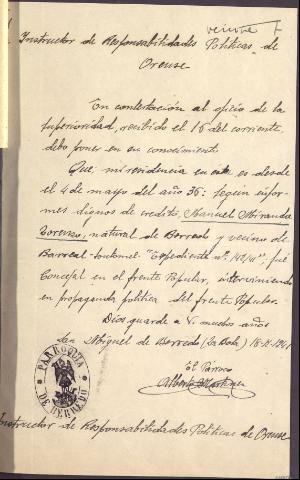 Instructor de Responsabilidades Políticas de
Orense
En contestación al oficio de la
Superioridad, recibido el 15 del corriente,
debo poner en su conocimiento
Que, mi residencia en esta es desde
el 4 de mayo del año 36: Según infor-
mes dignos de credito, Manuel Miranda
Lorenzo, natural de Berredo y vecino de
Barreal "Expediente nº 142/41", fué
Concejal en el frente Popular, interviniendo
en propaganda política del frente Popular.
Dios guarde a V. muchos años
San Miguel de Berredo (La Bola) 18-12-1941
El Párroco
Alberto Martínez
PARROQUIA
DE BERREDO
Instructor de Responsabilidades Politicas de Orense